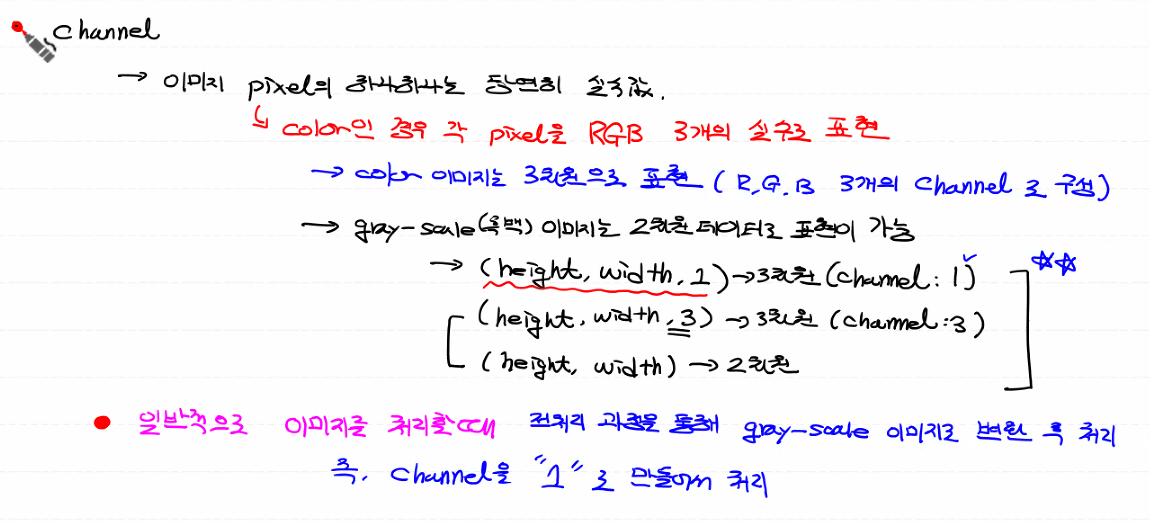 channel
→ 이미지 pixel의 하나하나는 당연히 실수값.
↳ color인 경우 각 pixel을 RGB 3개의 실수로 표현
→ color 이미지는 3차원으로 표현 (R,G,B 3개의 channel로 구성)
→ gray-scale(흑백) 이미지는 2차원 데이터로 표현이 가능
→ (height, width, 1) → 3차원 (channel: 1) ☆☆
(height, width, 3) → 3차원 (channel: 3)
(height, width) → 2차원
● 일반적으로 이미지를 처리할때 전처리 과정을 통해 gray-scale 이미지로 변환 후 처리
즉, channel을 "1"로 만들어서 처리